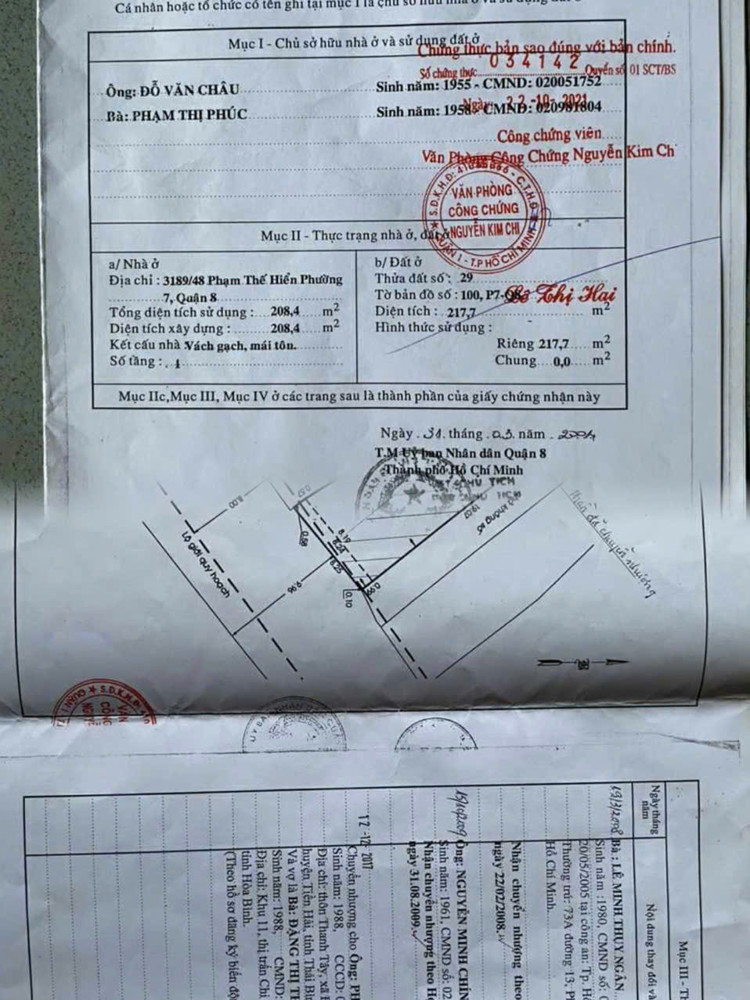 Cá nhân hoặc tổ chức có tên ghi tại mục I là chủ sở hữu nhà ở và sử dụng đất ở
Mục I - Chủ sở hữu nhà ở và sử dụng đất ở
Chứng thực bản sao đúng với bản chính.
Số chứng thực 034142 Quyển số 01 SCT/BS
Ông: ĐỖ VĂN CHÂU Sinh năm: 1955 - CMND: 020051752
Ngày 22-10-2021
Bà: PHẠM THỊ PHÚC Sinh năm: 1958 - CMND: 020981804
Công chứng viên
Văn Phòng Công Chứng Nguyễn Kim Ch
VĂN PHÒNG
CÔNG CHỨNG
NGUYỄN KIM CHI
QUẬN 1 - T.P HỒ CHÍ MINH
Mục II - Thực trạng nhà ở, đất ở
a/ Nhà ở
Địa chỉ : 3189/48 Phạm Thế Hiển Phường
7, Quận 8
Tổng diện tích sử dụng : 208,4 m2
Diện tích xây dựng : 208,4 m2
Kết cấu nhà Vách gạch, mái tôn.
Số tầng : 1
b/ Đất ở
Thửa đất số : 29
Tờ bản đồ số : 100, P7-Q8
Thị Hai
Diện tích : 217,7 m2
Hình thức sử dụng :
Riêng 217,7 m2
Chung 0,0 m2
Mục IIc,Mục III, Mục IV ở các trang sau là thành phần của giấy chứng nhận này
Ngày 31 tháng 03 năm 2004
T.M Uỷ ban Nhân dân Quận 8
Thành phố Hồ Chí Minh
CHỦ TỊCH
8.00
0.57
0.58
8.19
8.24
8.25
19.07
Lộ giới quy hoạch
9.96
0.10
0.66
Phần đã chuyển nhường
S.D.K.H.D
VĂN
CÔNG
Mục III - T
Ngày tháng
năm
Nội dung thay đổi v
19/3/2008
Bà : LÊ MINH THUY NGÂN
Sinh năm :1980, CMND số:
20/05/2005 tại công an: Tp. H
Thường trú: 73A đường 13, P
Hồ Chí Minh.
Nhận chuyển nhượng theo
ngày 22/02/2008.
15/10/2009
Ông: NGUYỄN MINH CHÍN
Sinh năm: 1961, CMND số: 02
Nhận chuyển nhượng theo H
ngày 31.08.2009.
12-12-2017
Chuyển nhượng cho Ông: PH
Sinh năm: 1988, CCCD: 0
Địa chỉ: thôn Thanh Tây, xã
huyện Tiền Hải, tỉnh Thái Bì
Và vợ là Bà: ĐẶNG THỊ TH
Sinh năm: 1988, CMND:
Địa chỉ: Khu 11, thị trấn Chi
tỉnh Hòa Bình.
(Theo hồ sơ đăng ký biến độ